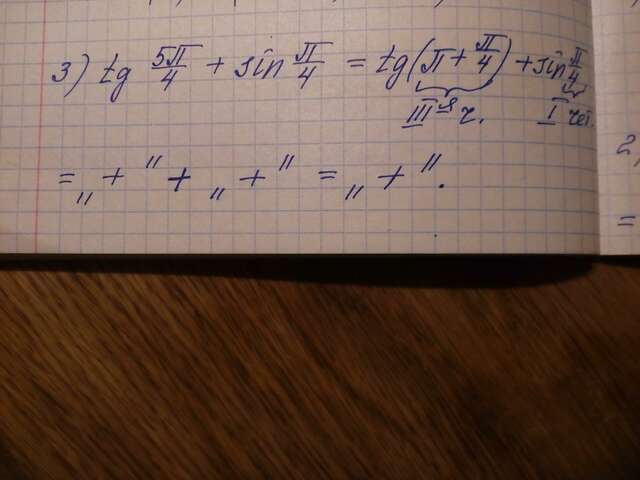 3) tg 5π/4 + sin π/4 = tg(π + π/4) + sin π/4
III я ч. I чет.
= „ + " + „ + " = „ + ".
2)
=